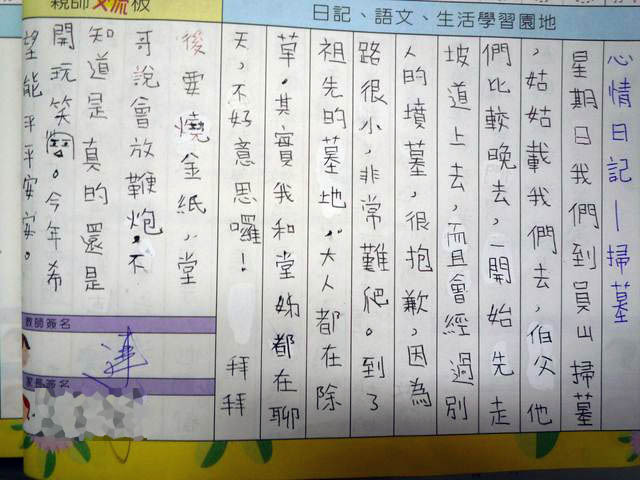 親師交流板
日記、語文、生活學習園地
心情日記—掃墓
星期日我們到員山掃墓
，姑姑載我們去，伯父他
們比較晚去，一開始先走
坡道上去，而且會經過別
人的墳墓，很抱歉，因為
路很小，非常難爬。到了
祖先的墓地，大人都在除
草。其實我和堂姊都在聊
天，不好意思囉！拜拜
後要燒金紙，堂
哥說會放鞭炮，不
知道是真的還是
開玩笑。今年希
望能平平安安。
教師簽名
家長簽名